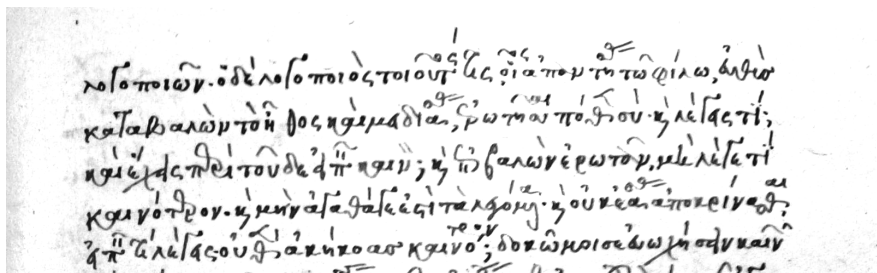 λογοποιῶν· ὁ δὲ λογοποιὸς τοιοῦτός τις οἷος ἀπαντήσας τῶ φίλω, εὐθὺς
καταβαλὼν τὸ ἦθος καὶ μειδιάσας, ἐρωτῆσαι πόθεν σύ· καὶ λέγεις τί;
καὶ ἔχεις περὶ τοῦδε εἰπεῖν καινόν; καὶ ἐπιβαλὼν ἐρωτᾶν, μὴ λέγεταί τι
καινότερον· καὶ μὴν ἀγαθά γε ἐστὶ τὰ λεγόμενα· καὶ οὐκ ἐάσας ἀποκρίνασθαι,
εἰπεῖν τί λέγεις οὐθὲν ἀκήκοας καινότερον; δοκῶ μοι σε εὐωχήσειν καινῶν